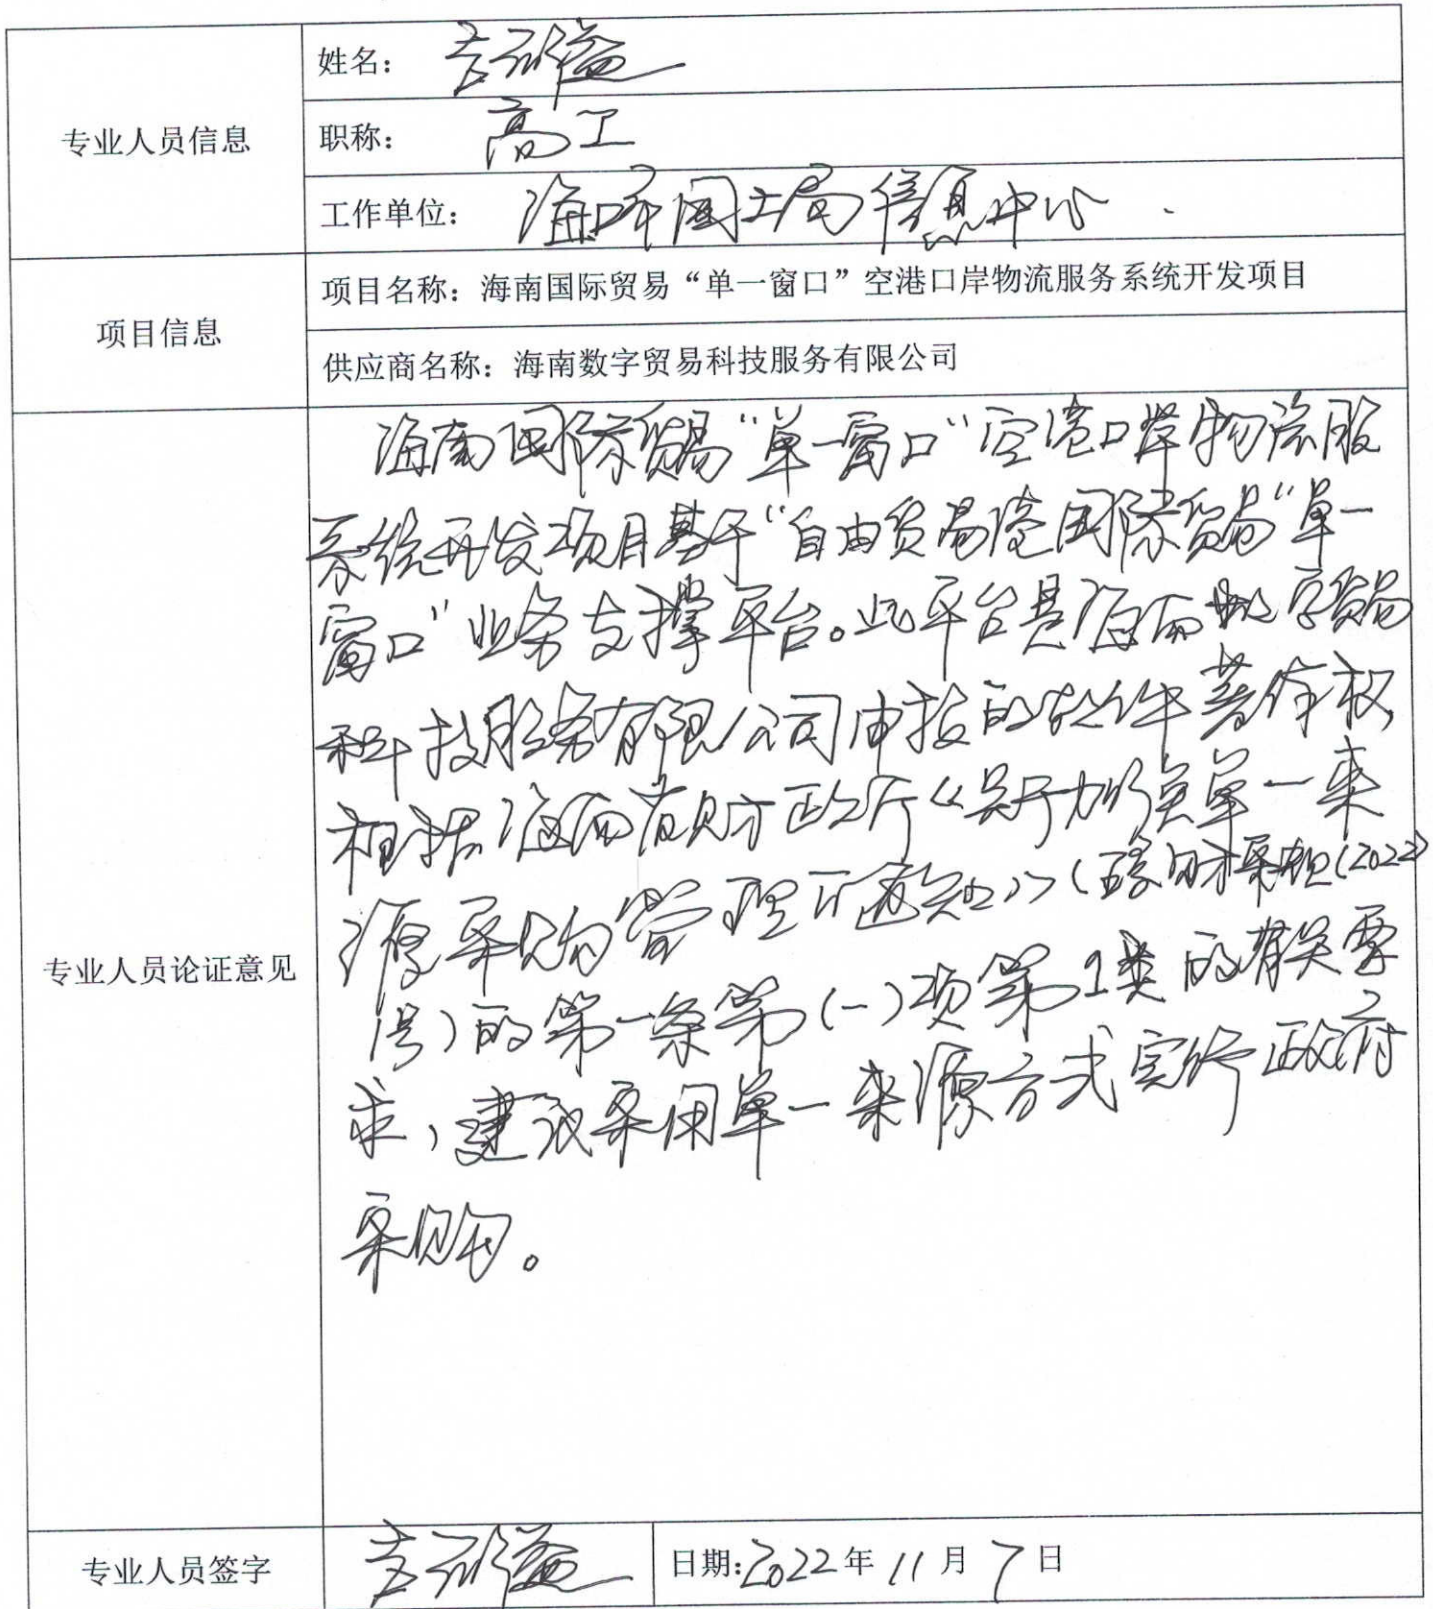 专业人员信息
姓名：
职称： 高工
工作单位： 海口市国土局信息中心
项目信息
项目名称：海南国际贸易“单一窗口”空港口岸物流服务系统开发项目
供应商名称：海南数字贸易科技服务有限公司
专业人员论证意见
海南国际贸易“单一窗口”空港口岸物流服
系统开发项目基于“自由贸易港国际贸易“单一
窗口”业务支撑平台。此平台是海南数字贸易
科技服务有限公司申报的软件著作权,
根据海南省财政厅《关于加强单一来
源采购管理的通知》(琼财采规(2022)
号)的第一条第(一)项第1类的有关要
求，建议采用单一来源方式实行政府
采购。
专业人员签字
日期:2022年11月7日